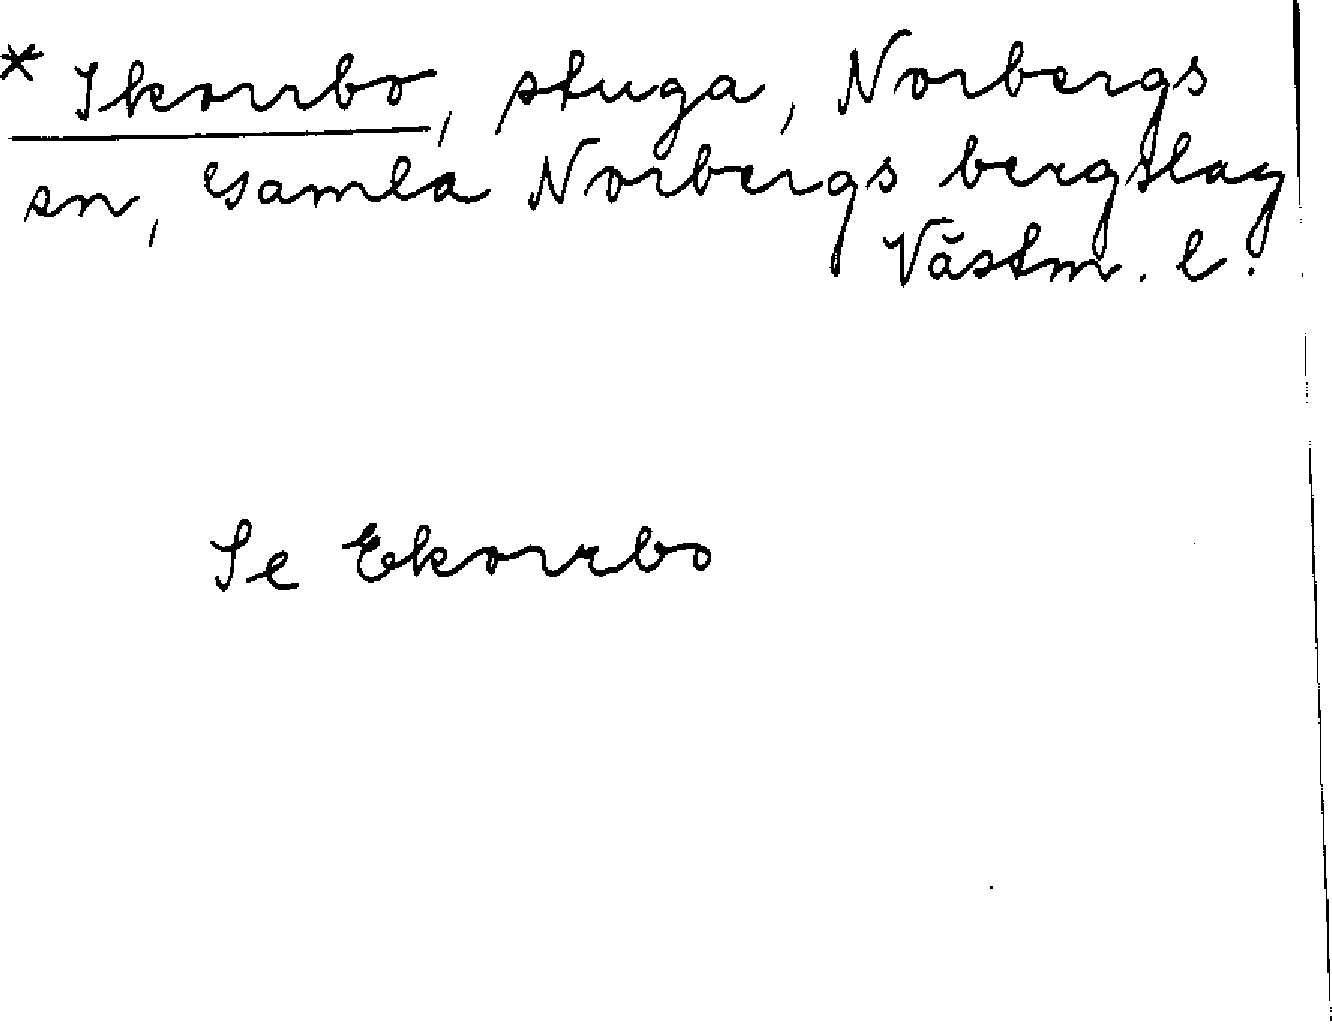 * Ikorrbo, stuga, Norbergs
sn, Gamla Norbergs bergslag
Västm. l.
Se Ekorrbo